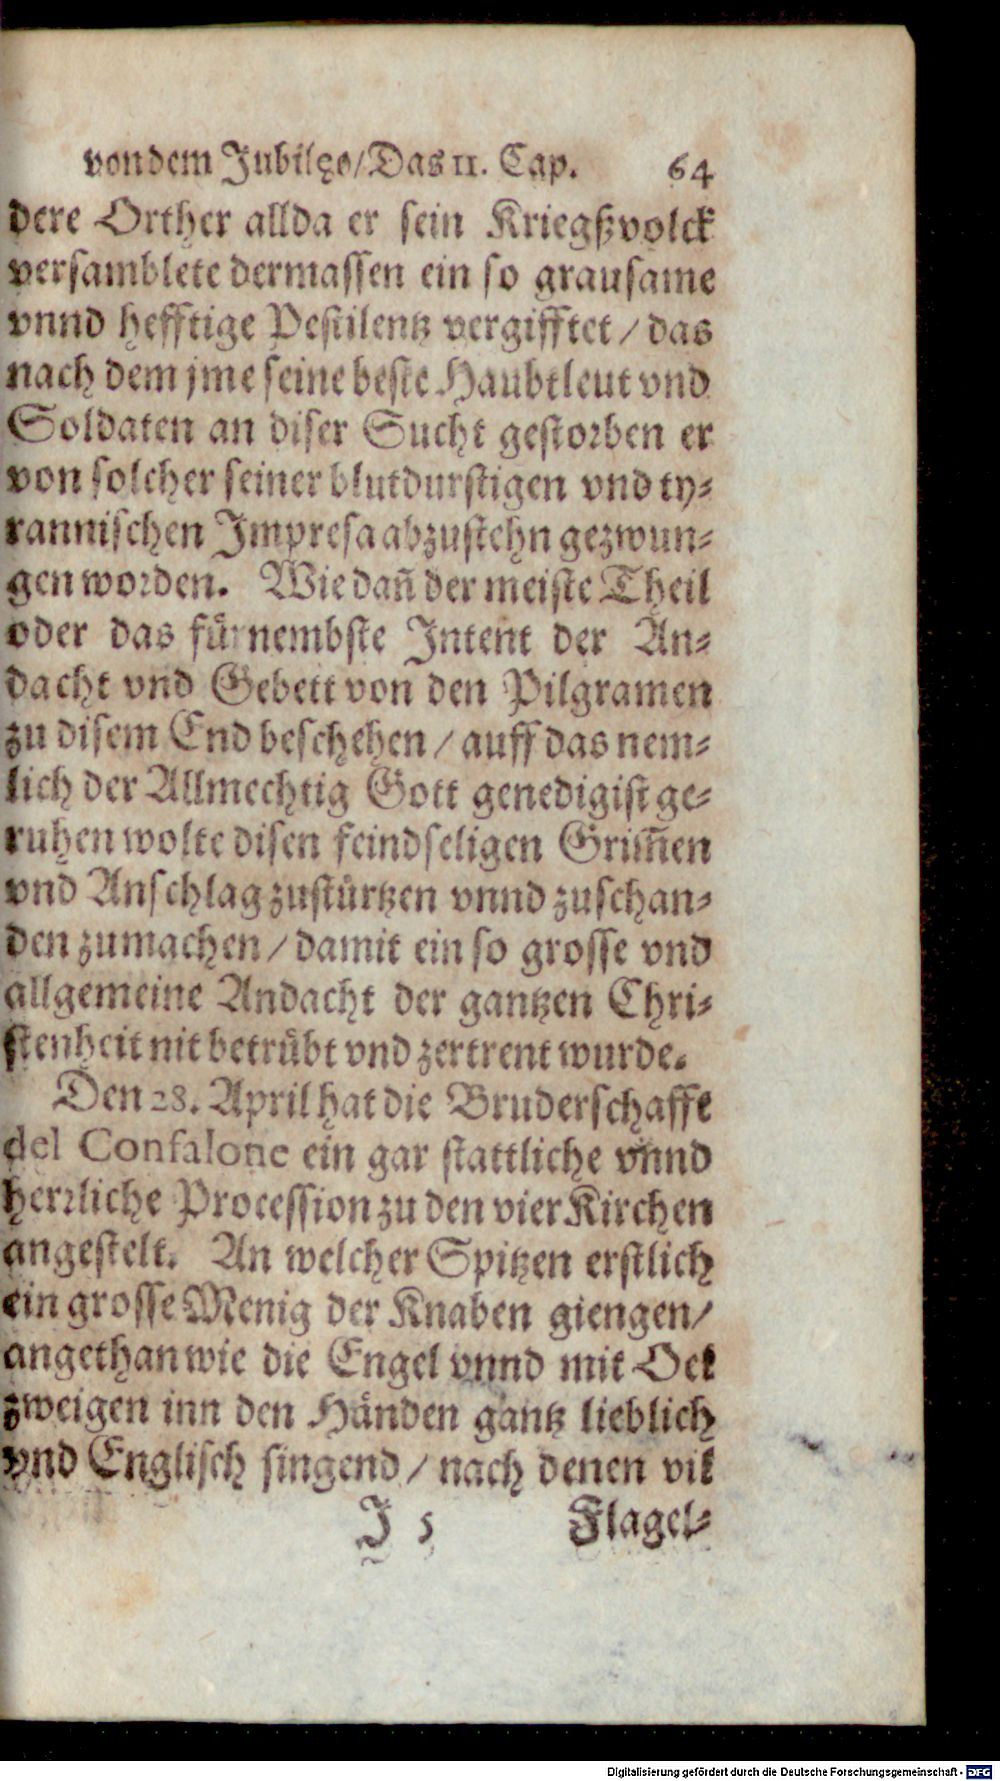 von dem Jubilęo/Das 11. Cap. 64
dere Orther allda er sein Kriegßvolck
versamblete dermassen ein so grausame
vnnd hefftige Pestilentz vergifftet / das
nach dem jme seine beste Haubtleut vnd
Soldaten an diser Sucht gestorben er
von solcher seiner blutdurstigen vnd ty⸗
rannischen Impresa abzustehn gezwun⸗
gen worden. Wie dañ der meiste Theil
oder das fürnembste Intent der An⸗
dacht vnd Gebett von den Pilgramen
zu disem End beschehen / auff das nem⸗
lich der Allmechtig Gott genedigist ge⸗
ruhen wolte disen feindseligen Grim̃en
vnd Anschlag zustürtzen vnnd zuschan⸗
den zumachen / damit ein so grosse vnd
allgemeine Andacht der gantzen Chri⸗
stenheit nit betrübt vnd zertrent wurde.
Den 28. April hat die Bruderschafft
del Confalone ein gar stattliche vnnd
herrliche Procession zu den vier Kirchen
angestelt. An welcher Spitzen erstlich
ein grosse Menig der Knaben giengen/
angethan wie die Engel vnnd mit Oel
zweigen inn den Händen gantz lieblich
vnd Englisch singend / nach denen vil
J 5 Flagel⸗
Digitalisierung gefördert durch die Deutsche Forschungsgemeinschaft - DFG